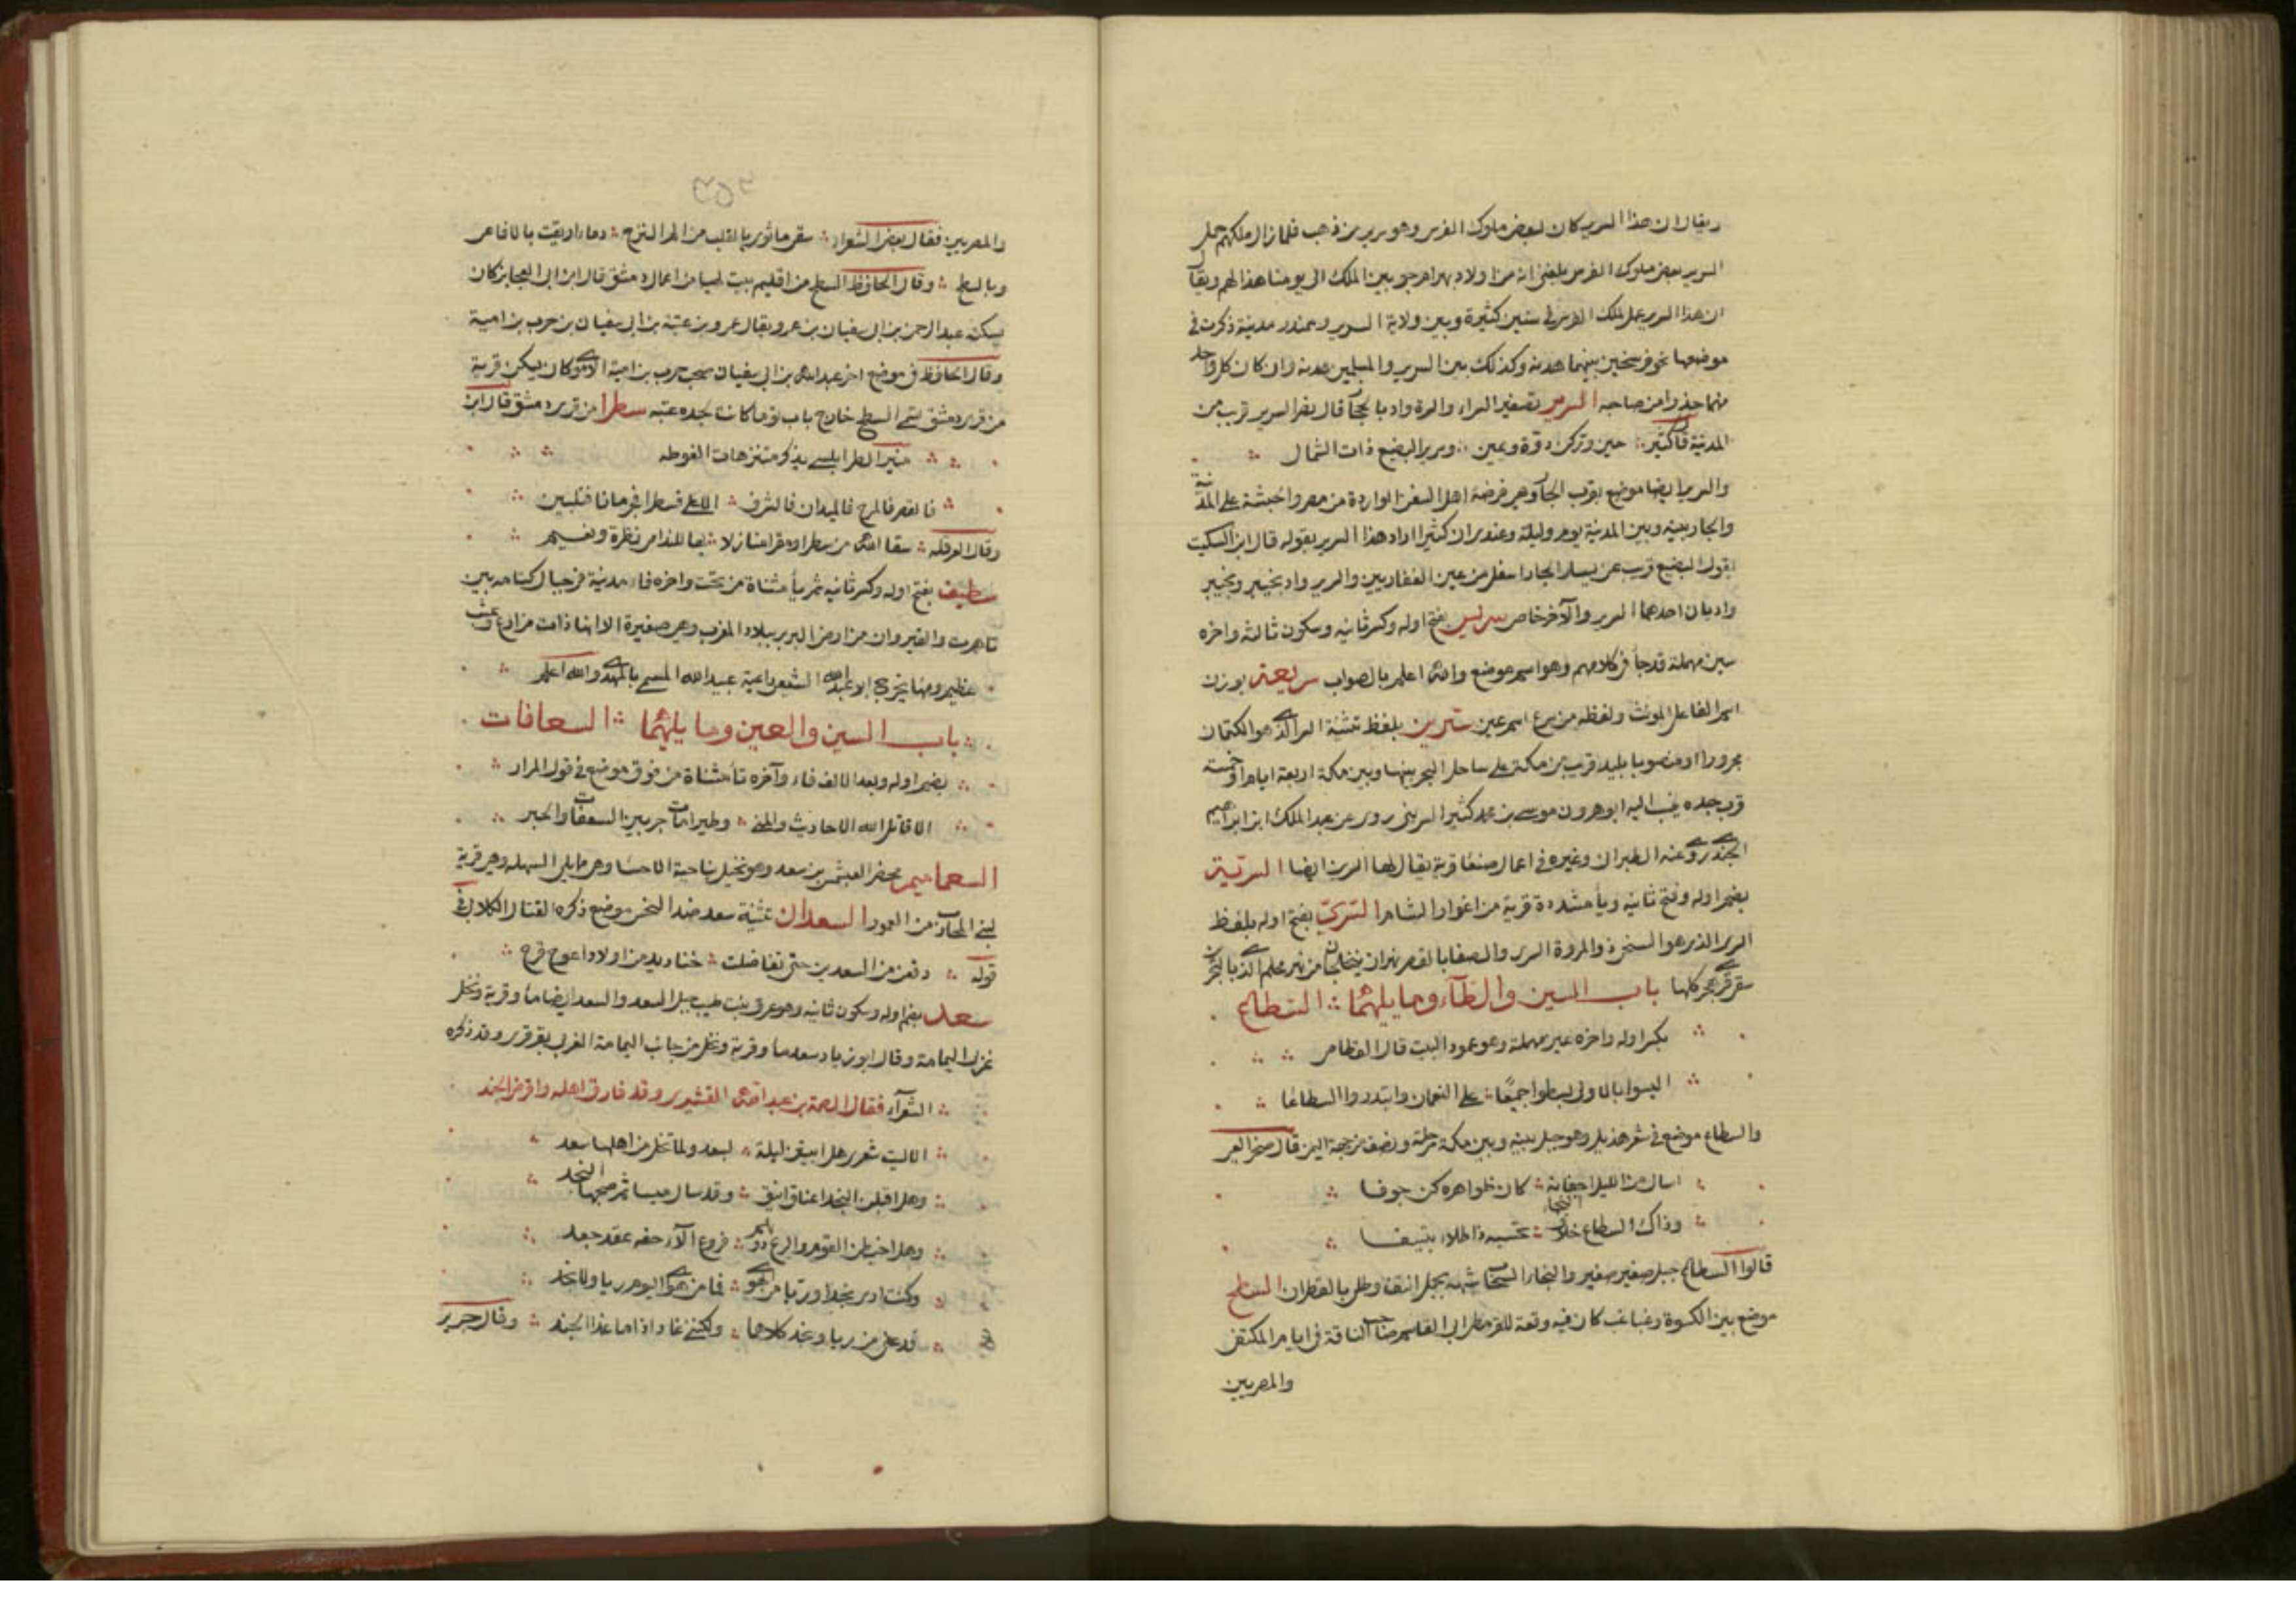 ويقال ان هذا السرير كان لبعض ملوك الفرس وهو سرير من ذهب فلما زال ملكهم حمل
السرير بعض ملوك الفرس بلغني انه من اولاد بهرام جوبين الملك الى يومنا هذا لهم ويقال
ان هذا السرير عمل لملك الفرس في سنين كثيرة وبين ولاية السرير وسمندر مدينة ذكرت في
موضعها نحو فرسخين بينهما هدنة وكذلك بين السرير والمسلمين هدنة وان كان كل واحد
منهما حذرا من صاحبه السرير تصغير السر والسرة واد بالحجاز قال بعض السرير قرب من
المدينة قال كثير حين وركن دوة ويمين وسرير البضيع ذات الشمال
والسرير ايضا موضع بقرب الجار وهي فرضة اهل السفن الواردة من مصر والحبشة على المدينة
والجار بينه وبين المدينة يوم وليلة وعندي ان كثيرا اراد هذا السرير بقوله قال ابن السكيت
يقول البضيع قريب عن يسار الجار اسفل من عين الغفاريين والسرير واد بخيبر وبخيبر
واديان احدهما السرير والآخر خاص سرليس بفتح اوله وكسر ثانيه وسكون ثالثه واخره
سين مهملة قد جا في كلامهم وهو اسم موضع والله اعلم بالصواب سريعة بوزن
اسم الفاعل المونث ولفظه من سرع اسم عين سرين بلفظ تثنية السر الذي هو الكتمان
مجرورا او منصوبا بليد قريب من مكة على ساحل البحر بينها وبين مكة اربعة ايام او خمسة
قرب جده ينسب اليه ابو هرون موسى بن محمد كثير السريني روى عن عبد الملك ابن ابراهيم
الجندي روى عنه الطبراني وغيره في اعمال صنعا قرية يقال لها السرين ايضا السرية
بضم اوله وفتح ثانيه ويا مشددة قرية من اغوار الشام السري بفتح اوله بلفظ
السري الذي هو السخي ذو المروة السري والصفا بالقصر نهران يتخلجان من نهر محلم الذي بالبحرين
سقي قرى هجر كلها باب السين والطآء وما يليهما السطاع
بكسر اوله واخره عين مهملة وهو عمود البيت قال القطامي
اليسوا بالاولى بسطوا جميعا على النعمان وابتدروا السطاعا
والسطاع موضع في شعر هذيل وهو جبل بينه وبين مكة مرحلة ونصف من جهة اليمن قال صخر الغي
اسال من الليل اجفانه كان ظواهره كن جوفا
وذاك السطاع خلاف النجاء تحسبه ذا طلاء نتيفا
قالوا السطاع جبل صغير صغير والنجاء السحاب شبهه بجمل انتف وطلي بالقطران السطح
موضع بين الكسوة وغباغب كان فيه وقعة للقرمطي ابي القاسم صاحب الناقة في ايام المكتفي
والمصريين
٣٥٢
والمصريين فقال بعض الشعراء سقى ما ثوى بالقلب من الم النزح دماء اريقت بالافاعي
وبالسطح وقال الحافظ السطح من اقليم بيت لهيا من اعمال دمشق قال ابن ابي العجايز كان
يسكنه عبد الرحمن بن ابي سفيان بن عمرو ويقال عمرو بن عتبة بن ابي سفيان بن حرب بن امية
وقال الحافظ في موضع اخر عبد الله بن ابي سفيان بن حرب بن امية الاموي كان يسكن قرية
من قرى دمشق تسمى السطح خارج باب توما كانت لجده عتبه سطرا من قرى دمشق قال ابن
منير الطرابلسي يذكر متنزهات الغوطه
فالقصر فالمرج فالميدان فالشرف الاعلى فسطرا فجرمانا فقلبين
وقال العرقله سقا الله من سطرا ومقرا منازلا بها للندامى نظرة ونعيم
سطيف بفتح اوله وكسر ثانيه ثم يأ مثناة من تحت واخره فاء مدينة في جبال كتامه بين
تاهرت والقيروان من ارض البربر ببلاد المغرب وهي صغيرة الا انها ذات مزارع وعشب
عظيم ومنها يخرج ابو عبد الله الشيعي داعية عبيد الله المسمى بالمهدي والله اعلم
باب السين والعين وما يليهما السعافات
بضم اوله وبعد الالف فاء وآخره تأ مثناة من فوق موضع في قول المرار
الا قاتل الله الاحاديث والمنى وطيرا جرت بين السعافات والحبر
السعاميم محضر لعبشمس بن سعد وهو نخيل بناحية الاحسا وهي مما يلي السهله وهي قرية
لبني المحارب من العمور السعدان تثنية سعد ضد النحس موضع ذكره القتال الكلابي في
قوله دفعن من السعدين حتى تفاضلت خناذيد من اولاد اعوج قرح
سعد بضم اوله وسكون ثانيه وهو عرق بنت طيب جبل السعد والسعد ايضا مأ وقرية ونخل
غربي اليمامة وقال ابو زياد سعد مأ وقرية ونخل من جانب اليمامة الغربي بقرقرى وقد ذكره
الشعرآء فقال الصمة بن عبد الله القشيري وقد فارق اهله وافترض الجند
الا ليت شعري هل ابيتن ليلة بسعد ولما تخل من اهلها سعد
وهل اقبلن النجد اعناق اينق وقد سار مسيا ثم صبحها النجد
وهل اخبطن القوم والريح فروع الآلاء حفه عقد جعد
وكنت ارى نجدا وريا من الهوى فما من هواي اليوم ريا ولا نجد
فدعني من ريا ونجد كلاهما ولكنني غاد اذا ما غدا الجند وقال جرير